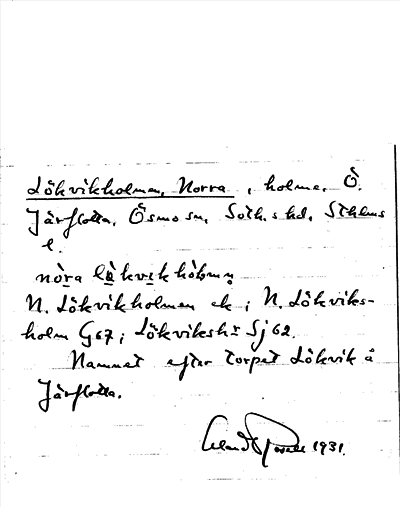 Lökvikholmen, Norra, holme, Ö.
Järflotta, Ösmo sn, Soth.s hd, Sthlms
l.
nòra lö̀kvıkhòlmən
N. Lökvikholmen ek; N. Lökviks-
holm G67; Lökviksh:r Sj 62.
Namnet efter torpet Lökvik å
Järflotta.
1931.